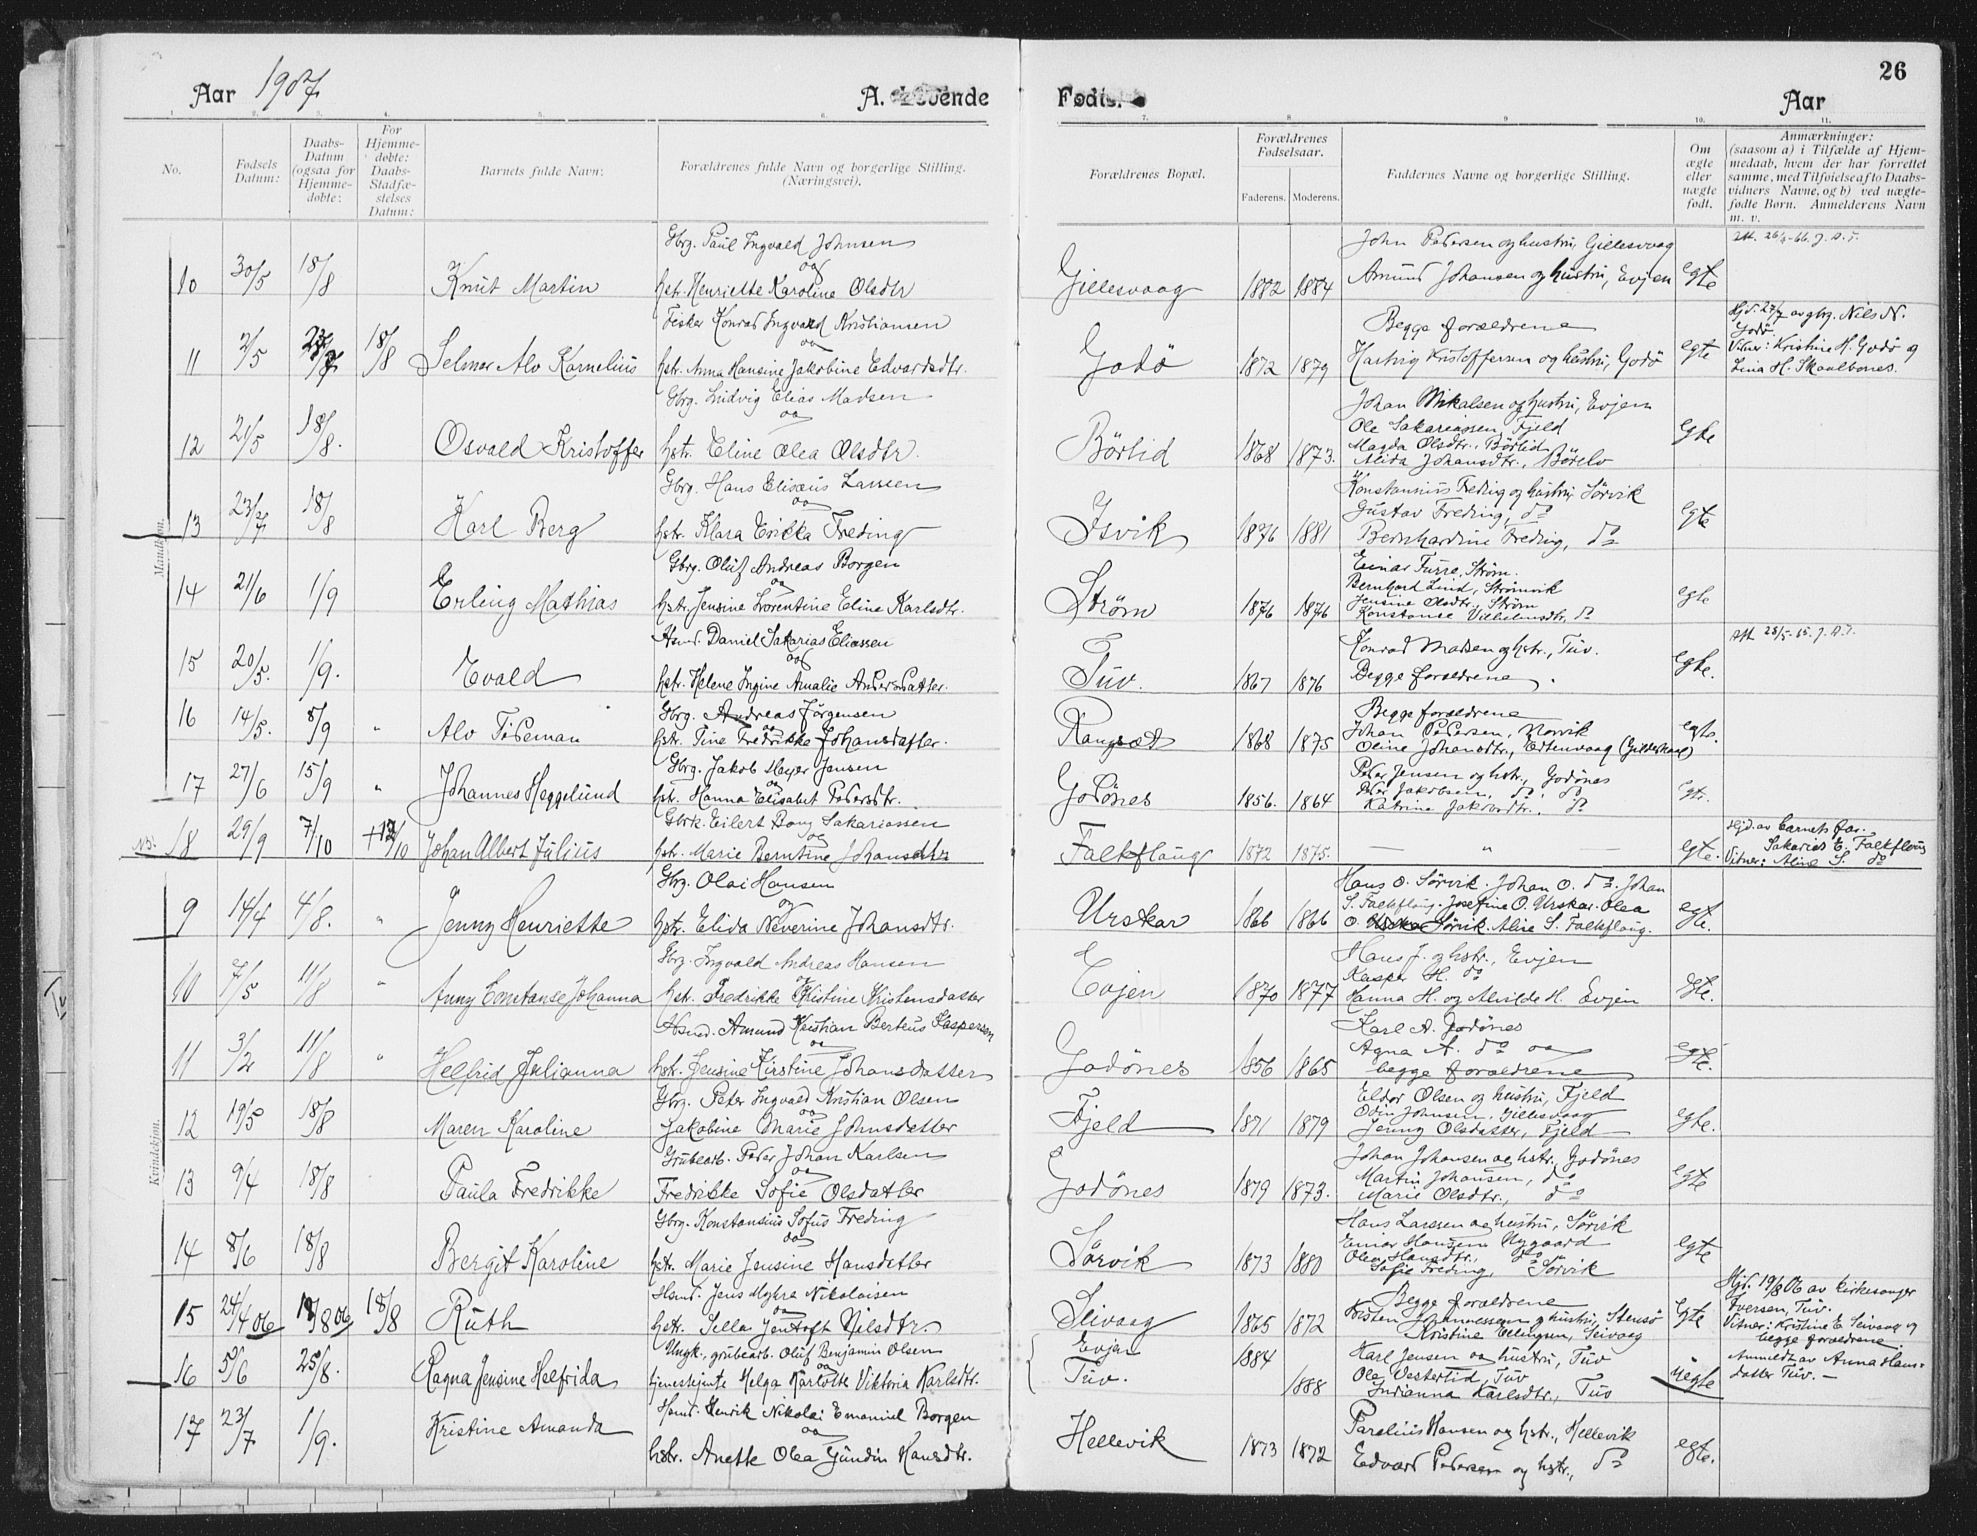 Aar 1907
A. Levende Fødte.
Aar
26
1. 2. 3. 4. 5. 6. 7. 8. 9. 10. 11.
No.
Fødsels Datum:
Daabs-Datum (ogsaa for Hjemmedøbte:
For Hjemmedøbte: Daabs-Stadfæstelses Datum:
Barnets fulde Navn:
Forældrenes fulde Navn og borgerlige Stilling. (Næringsvei).
Forældrenes Bopæl.
Forældrenes Fødselsaar.
Faderens. Moderens.
Faddernes Navne og borgerlige Stilling.
Om ægte eller uægte født.
Anmærkninger:
(saasom a) i Tilfælde af Hjemmedaab, hvem der har forrettet samme, med Tilføielse af to Daabsvidners Navne, og b) ved uægtefødte Børn. Anmelderens Navn m. v.
Mandkjøn.
Gbrg. Paul Ingvald Johnsen
og
10 30/5 18/8 Knut Martin hst. Henriette Karoline Olsdtr
Gillesvaag 1882 1884
John Pedersen og hustru, Gillesvaag
Amund Johansen og hustru, Evjen
egte
Fisker Konrad Ingvald Kristiansen
og
11 2/5 18/8 Selmer Alv Kornelius hst. Anna Hansine Jakobine Edvardsdtr.
Godø 1872 1879
Begge forældrene
Hartvig Kristoffersen og hustru, Godø
egte
Hjd. 27/7 av gbrg. Nils N.
Godø.
Vitner: Kristine H. Godø og
Lina H. Skaalbones.
Gbrg. Ludvig Elias Madsen
og
12 21/5 18/8. Osvald Kristoffer hstr. Eline Olea Olsdtr.
Börlid 1868 1873.
Johan Mikalsen og hustru, Evjen
Ole Sakariassen, Fjeld
Magda Olsdtr., Börlid
Alida Johansdtr., Börelv
egte
Gbrg. Hans Elisæus Larsen
og
13 18/8 Karl Berg hstr. Klara Erikka Freding
Isvik 1876 1881
Konstansius Freding og hustru Sörvik
Gustav Freding, do
Bernhardine Freding, do
egte
Gbrg. Oluf Andreas Borgen
og
14 21/6 1/9 Erling Mathias hstr. Jensine Lorentine Eline Karlsdtr.
Strøm 1876 1876
Einar Furre, Strøm.
Bernhard Lund, Strømvik
Jensine Olsdtr., Strøm
Konstanse Vilhelmsdtr, do
egte
Hsmd. Daniel Sakarias Eliassen
og
15 20/5. 1/9. Evald hstr. Helene Ingine Amalie Andersdatter.
Tuv. 1867 1876
Konrad Madsen og hstr., Tuv.
Begge forældrene.
egte.
Gbrg. Andreas Jørgensen
og
16 14/5. 8/9 " Alv Tideman hstr. Tine Fredrikke Johansdatter.
Rangsæt 1868 1875
Begge forældrene
Johan Pedersen, Norvik
Oline Johansdtr., Edtenvaag (Gildeskaal)
egte.
Gbrg. Jakob Mejer Jensen
og
17 27/6 15/9 " Johannes Heggelund hstr. Hanna Elisabet Pedersdtr.
Godönes 1856. 1864
Peder Jensen og hstr., Godönes
Peder Jakobsen, do, do
Katrine Jakobsdtr. do
Egte.
Gbrk. Eilert Bang Sakariassen
og
NB. 18 29/9 7/10 Johan Albert Julius hstr. Marie Berntine Johansdatter
Falkflaug 1872 1875.
— " —
egte.
Hjd. av barnets far.
Sakarias E. Falkflaug
Vitner: Aline S. do
Kvindekjøn.
Gbrg. Olai Hansen
og
9 14/4 4/8. " Jenny Henriette hstr. Elida Neverine Johansdtr.
Urskar 1866 1866
Hans O. Sørvik. Johan O. do. Johan
S. Falkflaug. Josefine O. Urskar. Olea
O. Sørvik. Aline S. Falkflaug.
egte.
Gbrg. Ingvald Andreas Hansen
og
10 7/5 11/8 " Anny Constanse Johanna hst. Fredrikke Kristine Kristensdatter
Evjen 1870 1877
Hans J. og hstr., Evjen
Kasper H. do
Hanna H. og Alvilde H. Evjen
egte.
Hsmd. Amund Kristian Berteus Kaspersen
og
11 3/2 11/8 " Helfrid Julianna hstr. Jensine Kirstine Johansdatter
Godönes 1856 1865
Karl A. Godönes
Agna A. do og
begge forældrene
egte.
Gbrg. Peter Ingvald Kristian Olsen
og
12 19/5 18/8 Maren Karoline Jakobine Marie Johnsdatter
Fjeld 1871 1879
Eldor Olsen og hustru, Fjeld
Odin Johnsen, Gillesvaag
Jenny Olsdatter, Fjeld
egte.
Grubearb. Peder Johan Karlsen
og
13 9/4 18/8 Paula Fredrikke Fredrikke Sofie Olsdatter
Godönes 1879 1873.
Johan Johansen og hstr. Godönes
Martin Johansen, do
Marie Olsdtr., do
egte
Gbrg. Konstansius Sofus Freding
og
14 8/6 18/8 Bergit Karoline hstr. Marie Jensine Hansdatter
Sörvik 1873 1880
Hans Larssen og hustru, Sörvik
Einar Hansen Nygaard
Olea Hansdtr. do
Sofie Freding, Sörvik
egte
Hsmd. Jens Myhre Nikolaisen
og
15 24/4 06 18/8 Ruth hstr. Sella Jentoft Nilsdtr.
Seivaag 1865 1872
Begge forældrene
Kristen Johannessen og hustru, Stensö
Kristine Ellingsen, Seivaag
Egte
Hjd. 19/8 06 av kirkesanger
Iversen, Tuv.
Vitner: Kristine E. Seivaag og
begge forældrene.
Ungk., grubearb. Oluf Benjamin Olsen
og
16 5/6 25/8. Ragna Jensine Helfrida tjenestejente Helga Karlotte Viktoria Karlsdtr.
Evjen 1884
Tuv. 1888
Karl Jensen og hustru, Tuv
Ole Vestertid, Tuv
Indianna Karlsdtr., Tuv
uegte
Anmeldt av Anna Hansdatter Tuv. —
Hsmd. Henrik Nikolai Emanuel Borgen
og
17 23/7 1/9. Kristine Amanda hstr. Anette Olea Gundin Hansdtr.
Hellevik 1873 1872
Parelius Hansen og hstr., Hellevik
Edvard Pedersen og hstr., do
egte.